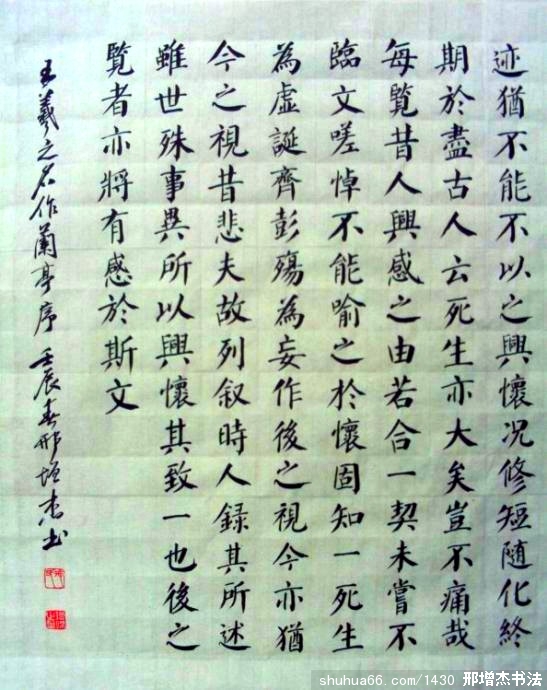 迹猶不能不以之興懷况修短隨化終
期於盡古人云死生亦大矣豈不痛哉
每覽昔人興感之由若合一契未嘗不
臨文嗟悼不能喻之於懷固知一死生
為虛誕齊彭殤為妄作後之視今亦猶
今之視昔悲夫故列叙時人録其所述
雖世殊事異所以興懷其致一也後之
覽者亦將有感於斯文
王羲之名作蘭亭序 壬辰春邢增杰书
shuhua66.com/1430 邢增杰书法